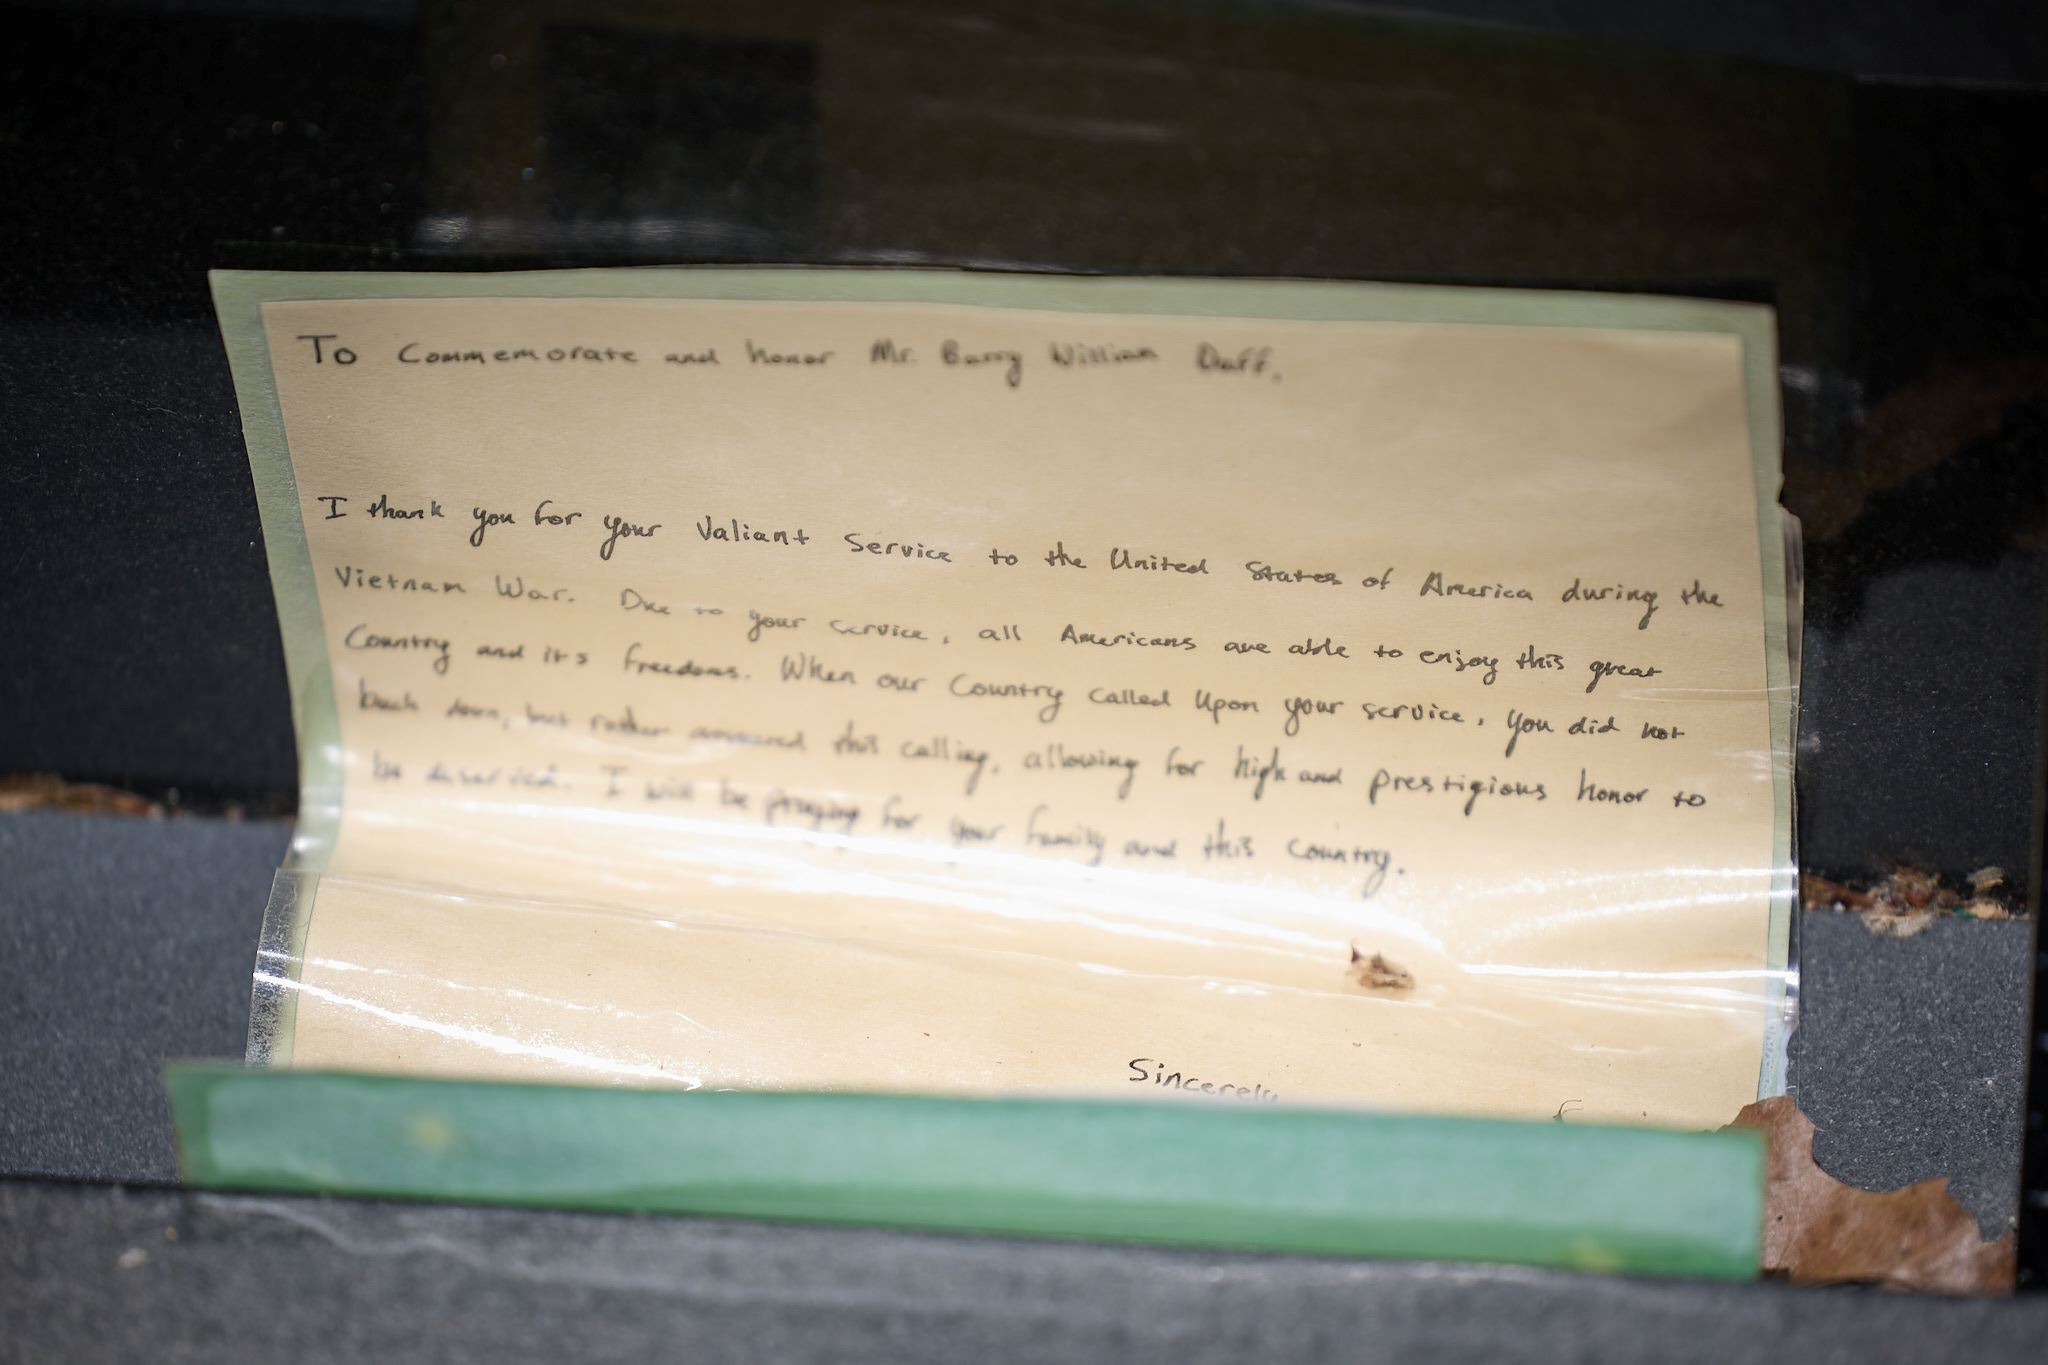 To Commemorate and honor Mr. Barry William Duff.
I thank you for your Valiant Service to the United States of America during the
Vietnam War. Due to your service, all Americans are able to enjoy this great
Country and it's freedoms. When our Country Called Upon your service, you did not
back down, but rather answered this calling, allowing for high and prestigious honor to
be I will be praying for your family and this country.
Sincerely